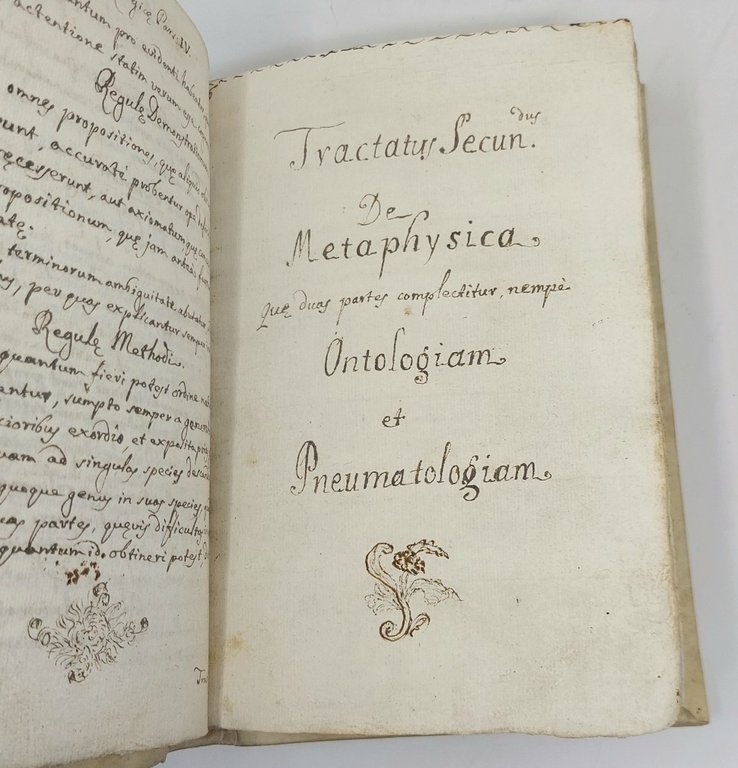 gicę Pars. IV.
antum pro evidenti
actentione statim verum esse
Regulę Demonstrationum
omnes propositiones, quę aliquid
unt, accuratè probentur ope
ręcesserunt, aut axiomatum, quę
ropositionum, quę jam antea
atę.
terminorum ambiguitate abutatur
as, per quas explicantur semper
Regulę Methodi.
quantum fieri potest ordine
entur, sumpto semper a
cioribus exordio, et exposita
uam ad singulas species
quoque genus in suas species,
uas partes, quęvis difficultas
quantum id obtineri potest,
Tra
Tractatus Secun.dus
De
Metaphysica.
Quę duas partes complectitur, nempè
Ontologiam
et
Pneumatologiam